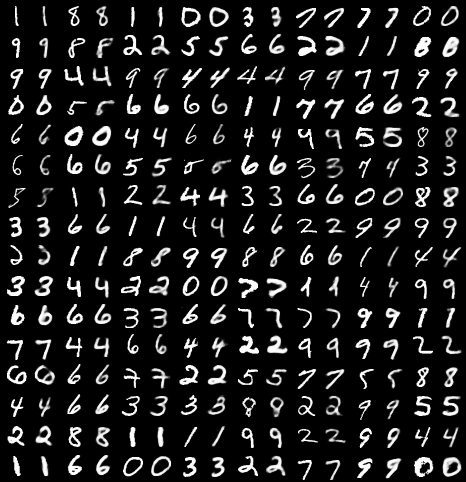 1 1 8 8 1 1 0 0 3 3 7 7 7 7 0 0
9 9 8 8 2 2 5 5 6 6 2 2 1 1 8 8
9 9 4 4 9 9 4 4 4 4 9 9 7 7 9 9
0 0 5 5 6 6 6 6 1 1 7 7 6 6 2 2
6 6 0 0 4 4 6 6 4 4 9 9 5 5 8 8
6 6 6 6 5 5 5 5 6 6 3 3 7 4 3 3
5 5 1 1 2 2 4 4 3 3 6 6 0 0 8 8
3 3 6 6 1 1 4 4 6 6 2 2 9 9 9 9
2 2 1 1 8 8 9 9 8 8 6 6 1 1 4 4
3 3 4 4 2 2 0 0 7 7 1 1 4 4 9 9
6 6 6 6 3 3 6 6 7 7 7 7 9 9 1 1
7 7 4 4 6 6 4 4 2 2 9 9 9 9 2 2
6 6 6 6 7 7 2 2 5 5 7 7 5 5 8 8
4 4 6 6 3 3 3 3 8 8 2 2 9 9 5 5
2 2 8 8 1 1 1 1 9 9 2 2 9 9 4 4
1 1 6 6 0 0 3 3 2 2 7 7 9 9 0 0